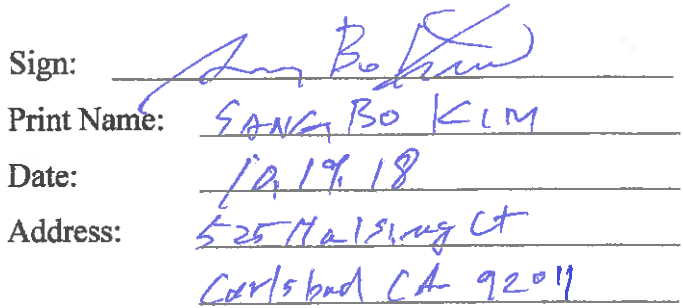 Sign: Sang Bo Kim
Print Name: SANG BO KIM
Date: 10.19.18
Address: 525 Ct
Carlsbad CA 92011